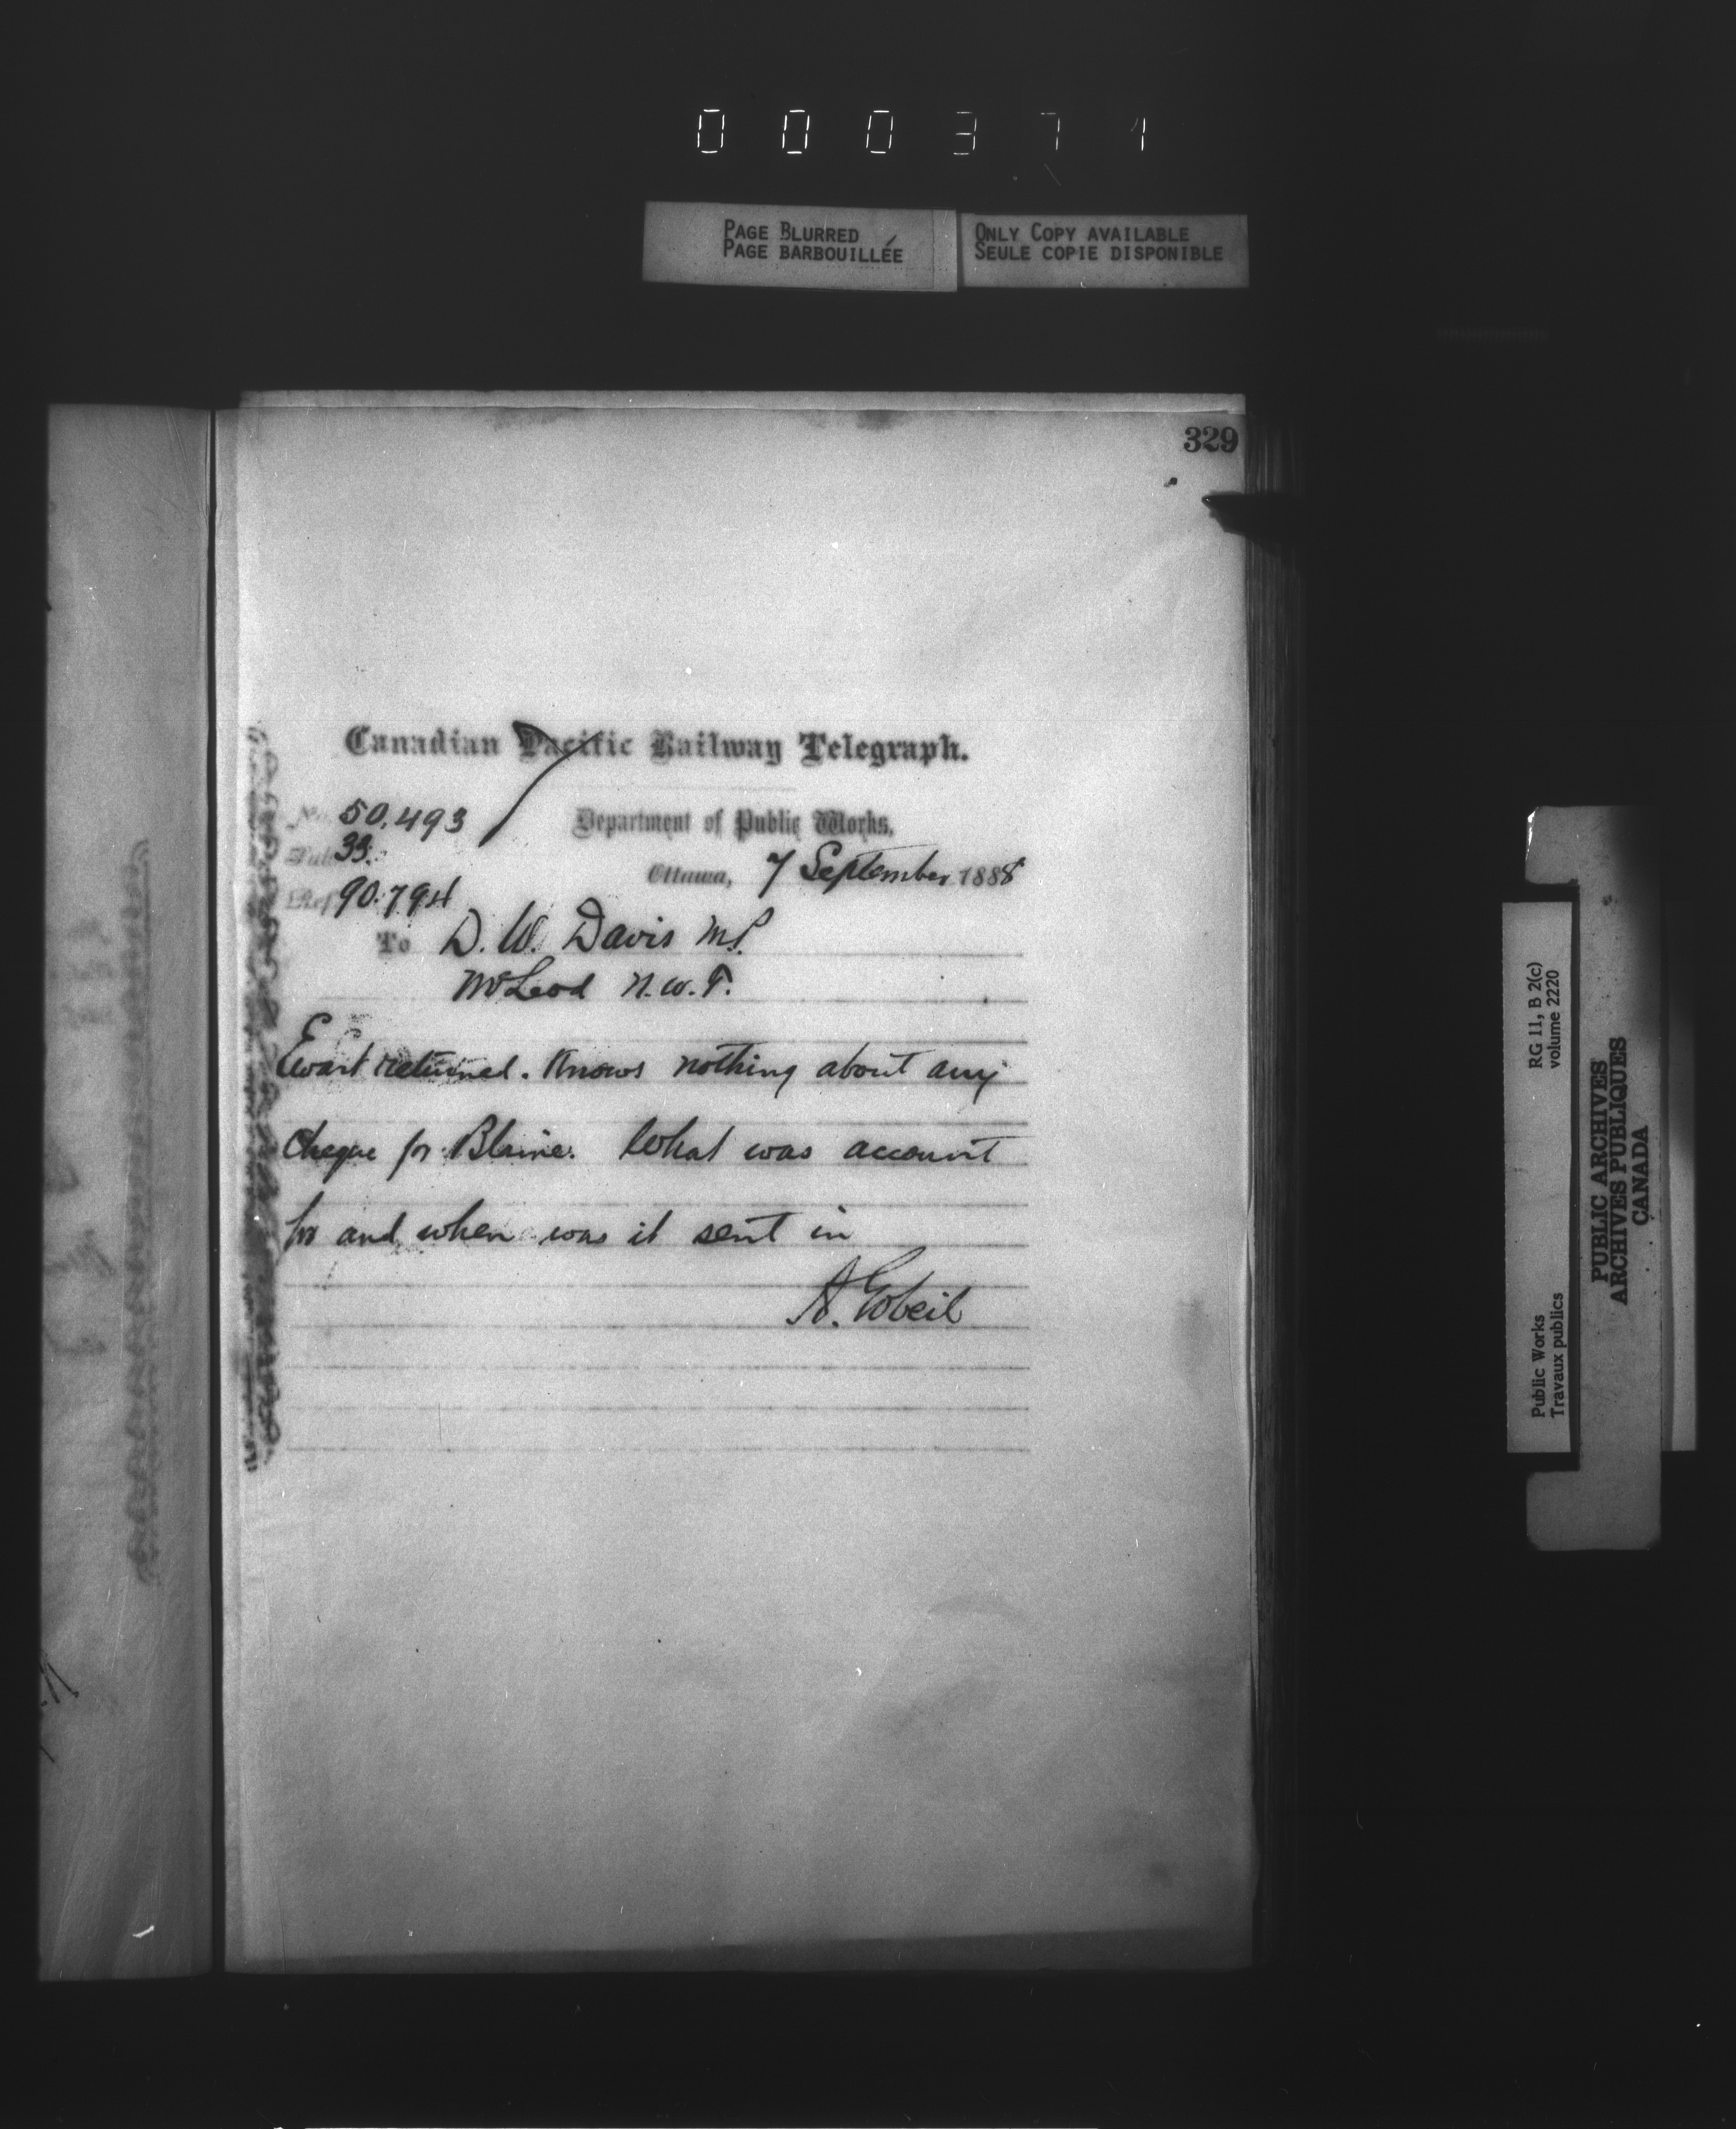 000371
PAGE BLURRED
PAGE BARBOUILLÉE
ONLY COPY AVAILABLE
SEULE COPIE DISPONIBLE
329
Canadian Pacific Railway Telegraph.
No. 50.493
Department of Public Works,
Sub. 33.
Ottawa, 7 September 1888
Ref. 90.794
To D. W. Davis M.P.
McLeod N.W.T.
Ewart returned. Knows nothing about any
cheque for Blaine. What was account
for and when was it sent in
A. Gobeil
RG 11, B 2(c)
volume 2220
Public Works
Travaux publics
PUBLIC ARCHIVES
ARCHIVES PUBLIQUES
CANADA